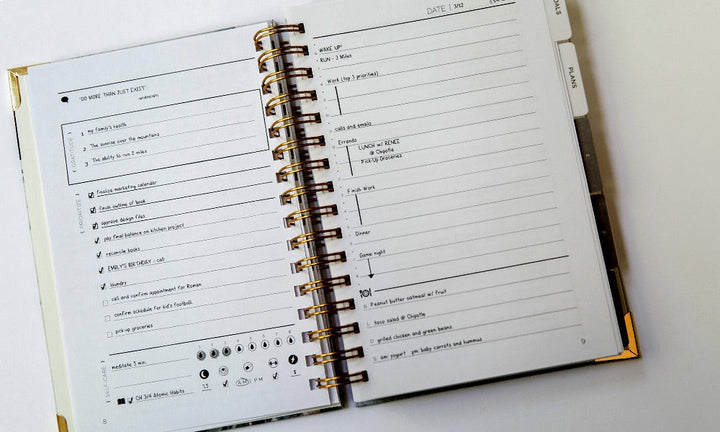 "DO MORE THAN JUST EXIST"
-unknown
[ GRATITUDE ]
1 my family's health
2 The sunrise over the mountains
3 The ability to run 2 miles
[ PRIORITIZE ]
finalize marketing calendar
finish outline of book
approve design files
pay final balance on kitchen project
reconcile books
EMILY'S BIRTHDAY - call
laundry
call and confirm appointment for Roman
confirm schedule for kid's football
pick-up groceries
[ SELF-CARE ]
meditate 5 min.
1 2 3 4 5 6 7 8
7.5
A.M. P.M
CH 3/4 Atomic Habits
8
DATE | 3/12
WAKE UP!
RUN - 2 Miles
Work (top 3 priorities)
calls and emails
Errands
LUNCH w/ RENEE
@ Chipotle
Pick-Up Groceries
Finish Work
Dinner
Game night
B Peanut butter oatmeal w/ fruit
L taco salad @ Chipotle
D grilled chicken and green beans
S am: yogurt pm: baby carrots and hummus
9
PLANS